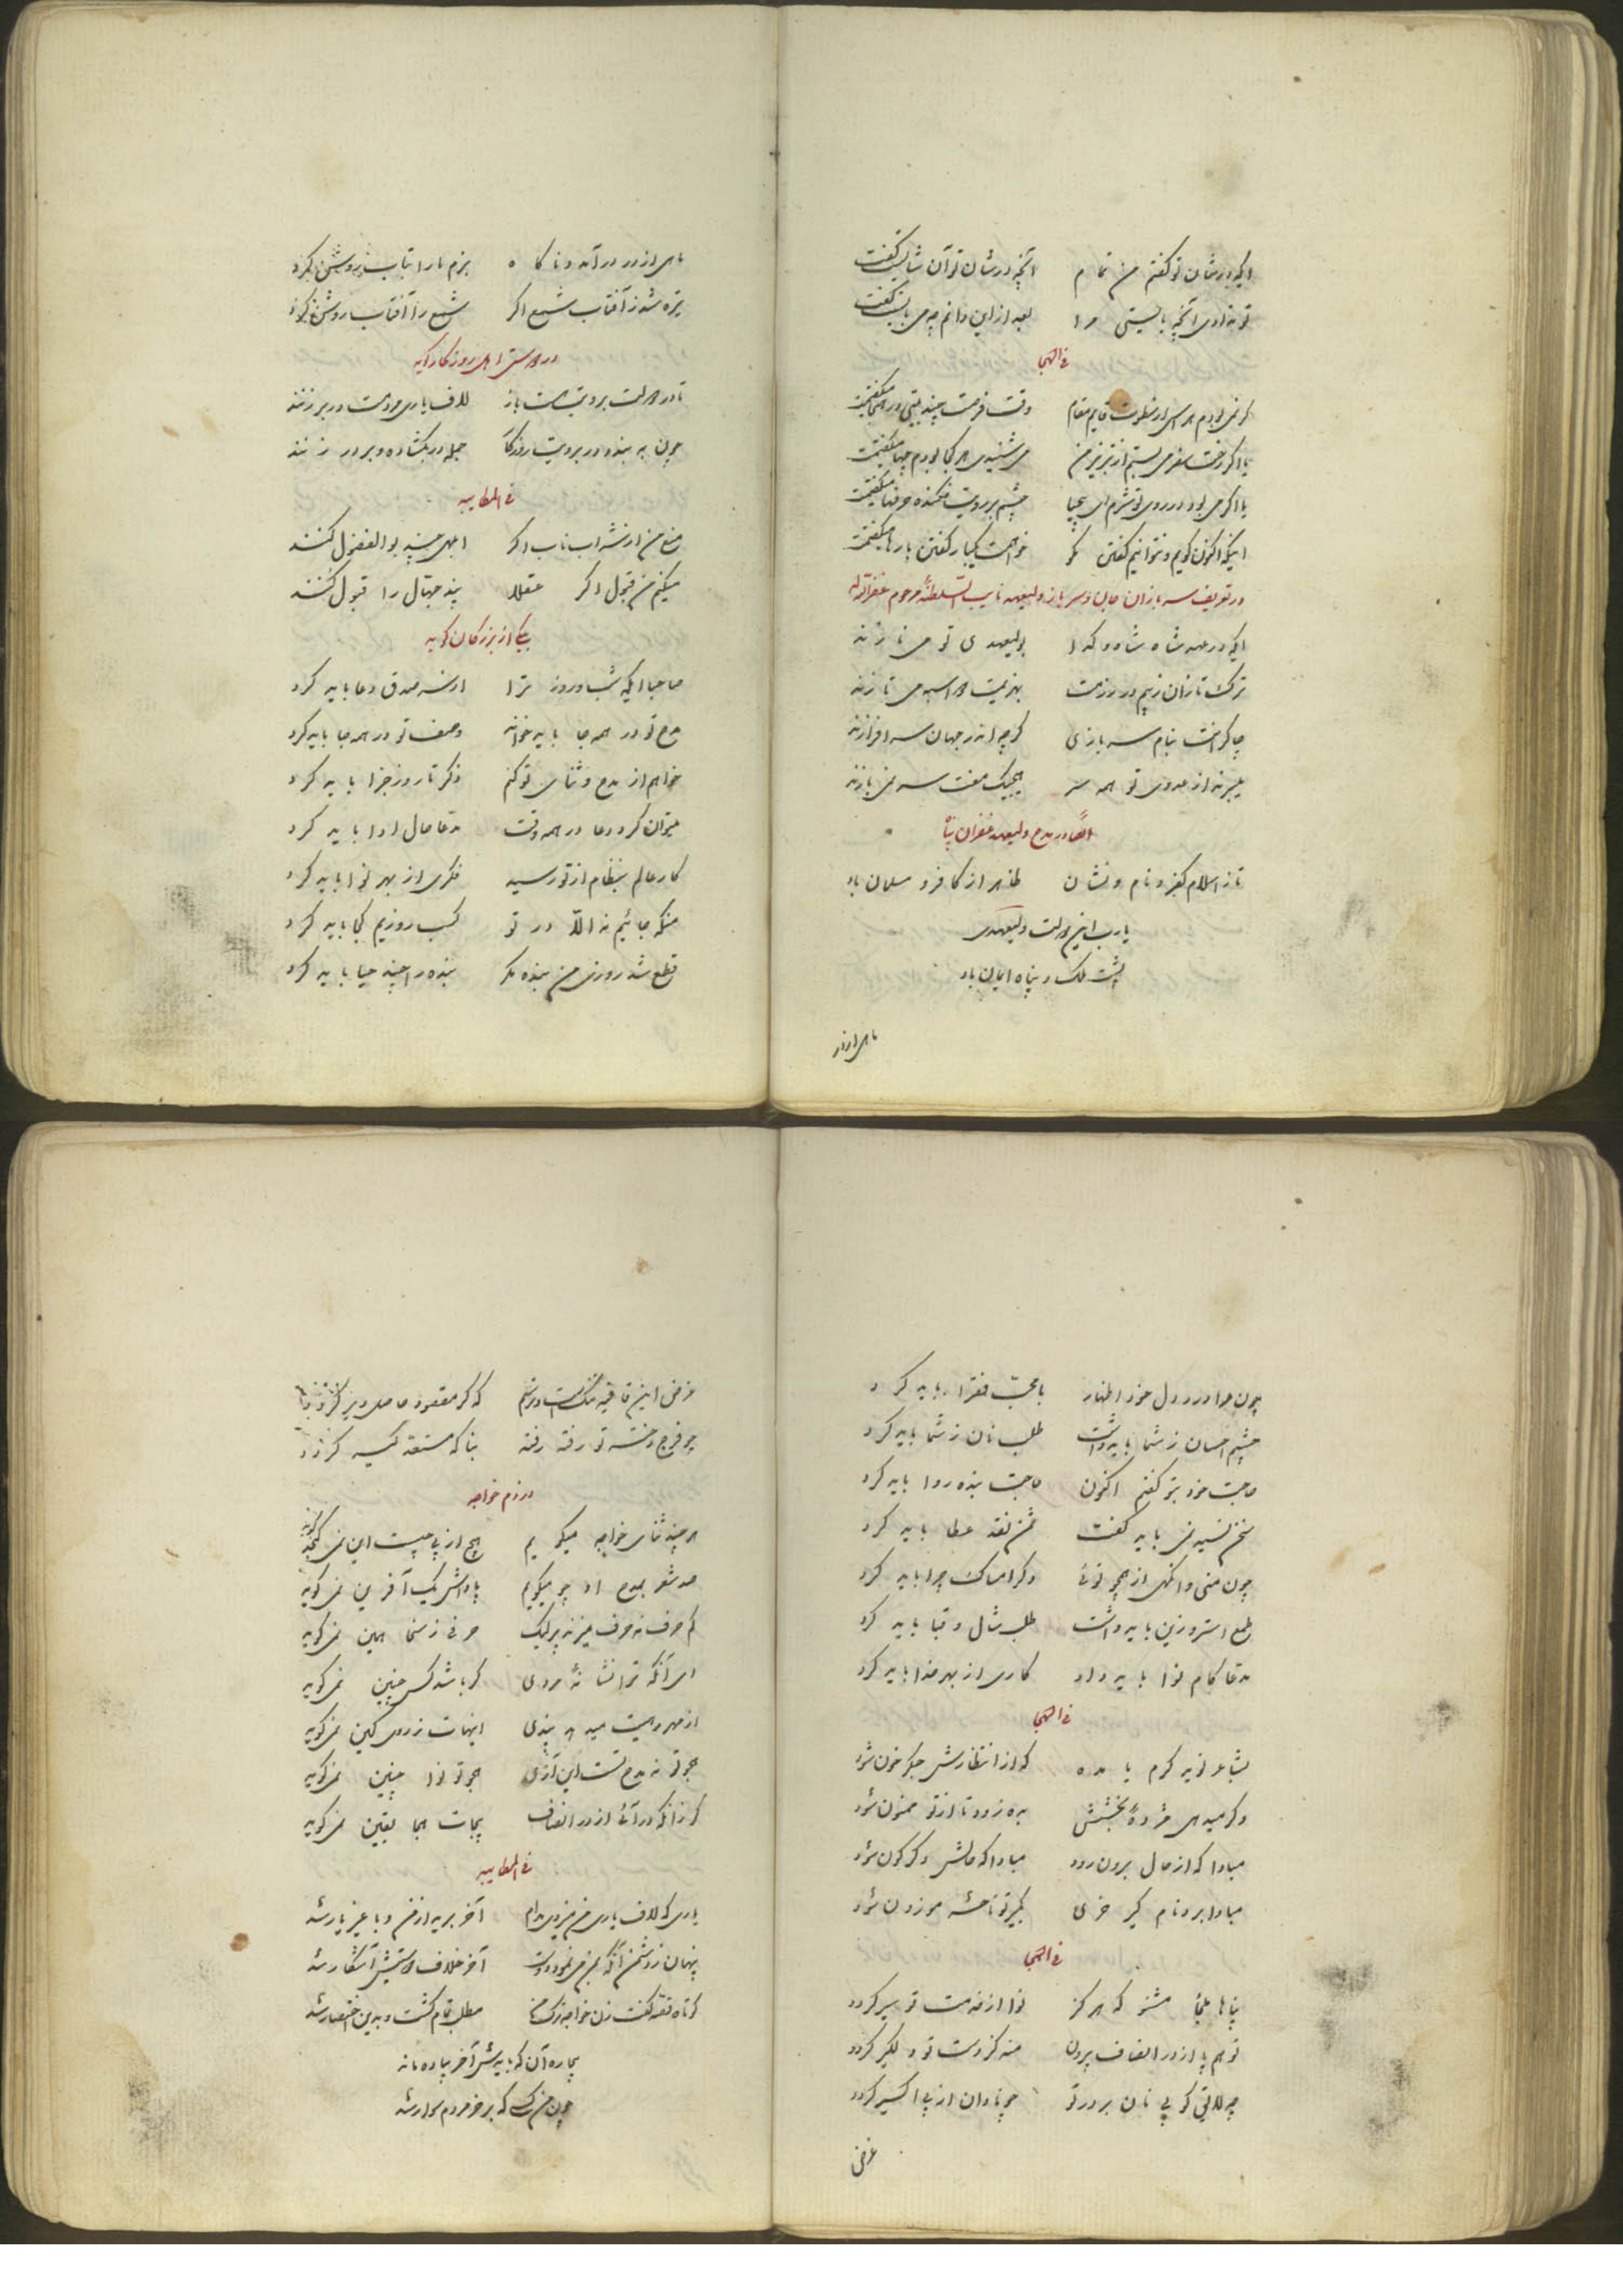 ایکه در شان تو گفتم من تمام آنچه در شان تو آن شایست گفت
تو ندادی آنچه بایستی مرا بعد ازاین دانم چه می بایست گفت
فی الهجا
گر نمی بودم هراسی از
وقت فرصت چند بیتی در هجا میگفتمت
یا اگر رخت سفر می بستم از تبریز من می شنیدی هر کجا بودم چها میگفتمت
یا اگر می بود در روی تو شرم ای بیحیا چشم بر رویت فکنده حرفها میگفتمت
اینکه اکنون گویم و نتوانیم گفتن مگو خواهمت یکبار گفتن بارها میگفتمت
در تعریف سربازان جان و سر باز ولیعهد نایب السلطنة مرحوم غفرالله له
ایکه در عهد شاه شاه و گدا بولیعهدی تو می نازند
ترک تازان ز بیم در رزمت بهزیمت هر اسبه می تازند
چاکرانت بنام سربازی گرچه اندر جهان سرافرازند
میبرند از عدوی تو همه سر هیچیک مفت سر نمی بازند
ایضا در مدح ولیعهد غفران پناه
تا ز اسلام کفر و نام و نشان ظاهر از کافر و مسلمان باد
یارب این دولت ولیعهدی
پشت ملک و پناه ایمان باد
ماهی از در
ماهی از در در آمد و ناگاه بزم ما را بتاب روشن کرد
تیره شد ز آفتاب شمع اگر شمع را آفتاب روشن کرد
در دوستی اهل روزگار گوید
تا در دولت برویت هست باز لاف یاری دوستت در بر زنند
چون به بندد در برویت روزگار جمله در بگشاده و بر در زنند
فی المطایبه
منع من از شراب ناب اگر ابلهی چند بوالفضول کنند
میکنم من قبول اگر عقلا پند جهال را قبول کنند
بیکی از بزرگان گوید
صاحبا ایکه شب و روز ترا از سر صدق دعا باید کرد
مدح تو در همه جا باید خواند وصف تو در همه جا باید کرد
خواهم از مدح و ثنای تو کنم ذکر تا روز جزا باید کرد
میتوان کرد دعا در همه وقت مدعا حال ادا باید کرد
کار عالم بنظام از تو رسید فکری از بهر نوا باید کرد
منکه جائیم نه الا در تو کسب روزیم کجا باید کرد
قطع شد روزی من بنده مگر بنده را چند حیا باید کرد
چون مرا درد دل خود اظهار با محب فقرا باید کرد
چشم احسان ز شما باید داشت طلب نان ز شما باید کرد
حاجت خود بتو گفتم اکنون حاجت بنده روا باید کرد
سخن نسیه نمی باید گفت ثمن نقد عطا باید کرد
چون منی وانگهی از همچو توئی ذکر امساک چرا باید کرد
طمع استر و زین باید داشت طلب شال و قبا باید کرد
مدعا کام نوا باید داد کاری از بهر خدا باید کرد
فی الهجا
بشاعر نوید کرم یا مده که از انتظارش جگر خون شود
وگر میدهی مژدهٔ بخششی بده زود تا از تو ممنون شود
مبادا که از حال برون رود مبادا که حالش دگرگون شود
مبادا برد نام کیر خری بکیر تو ناخنه موزون شود
فی الهجا
پناها ملجأ مشنو که هرگز نوا از خدمت تو سیر گردد
تو هم پا از در انصاف بیرون منه کز دست تو دلگیر گردد
چه لایق کو پی نان بر در تو چو نادان از پی اکسیر گردد
غرض
غرض این قافیه تنگ است و ترسم که گر مقصود حاصل دیر گردد
چو فرج دختر تو رفته رفته بنا گه مستعد کیر گردد
در ذم خواجه
هر چند ثنای خواجه میگویم هیچ از پی چیست این نمیگوید
صد شعر بمدح او چو میگویم پاداش یک آفرین نمی گوید
کم حرف نه حرف میزند پر لیک حرفی ز سخا همین نمی گوید
ای آنکه ترا نشانهٔ مردی گر باشد کس چنین نمی گوید
از مهر و بدی اینهات ز روی کین نمی گوید
هجو تو نه مدح تست این آری هجو تو نوا چنین نمی گوید
گر زانکه در آئی از در انصاف بیجات هجا یقین نمی گوید
فی المطایبه
یاری که لاف یاری من میزد مدام آخر برید از من و با غیر یار شد
پنهان ز دشمن آنکه بمن می نمود دوست آخر خلاف دوستیش آشکار شد
کوتاه قصه گفت زن خواجه ترک من مطلب تمام گشت و بدین اختصار شد
بیچاره آن که بایدش آخر پیاده ماند
چون من کسی که بر خر مردم سوار شد